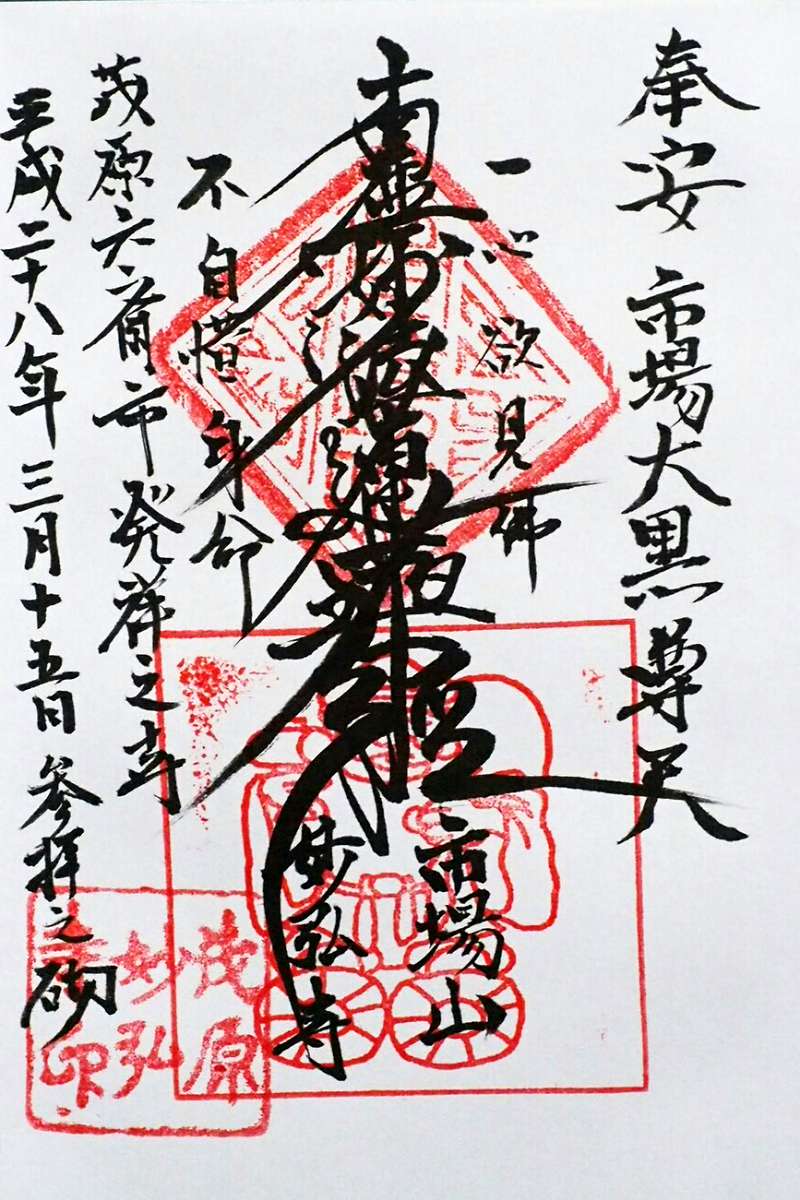 奉安 市場大黒尊天
一心欲見佛
南無妙法蓮華経
不自惜身命
市場山
妙弘寺
茂原六斎市発祥之寺
平成二十八年三月十五日 参拝之砌
茂原
妙弘
寺印